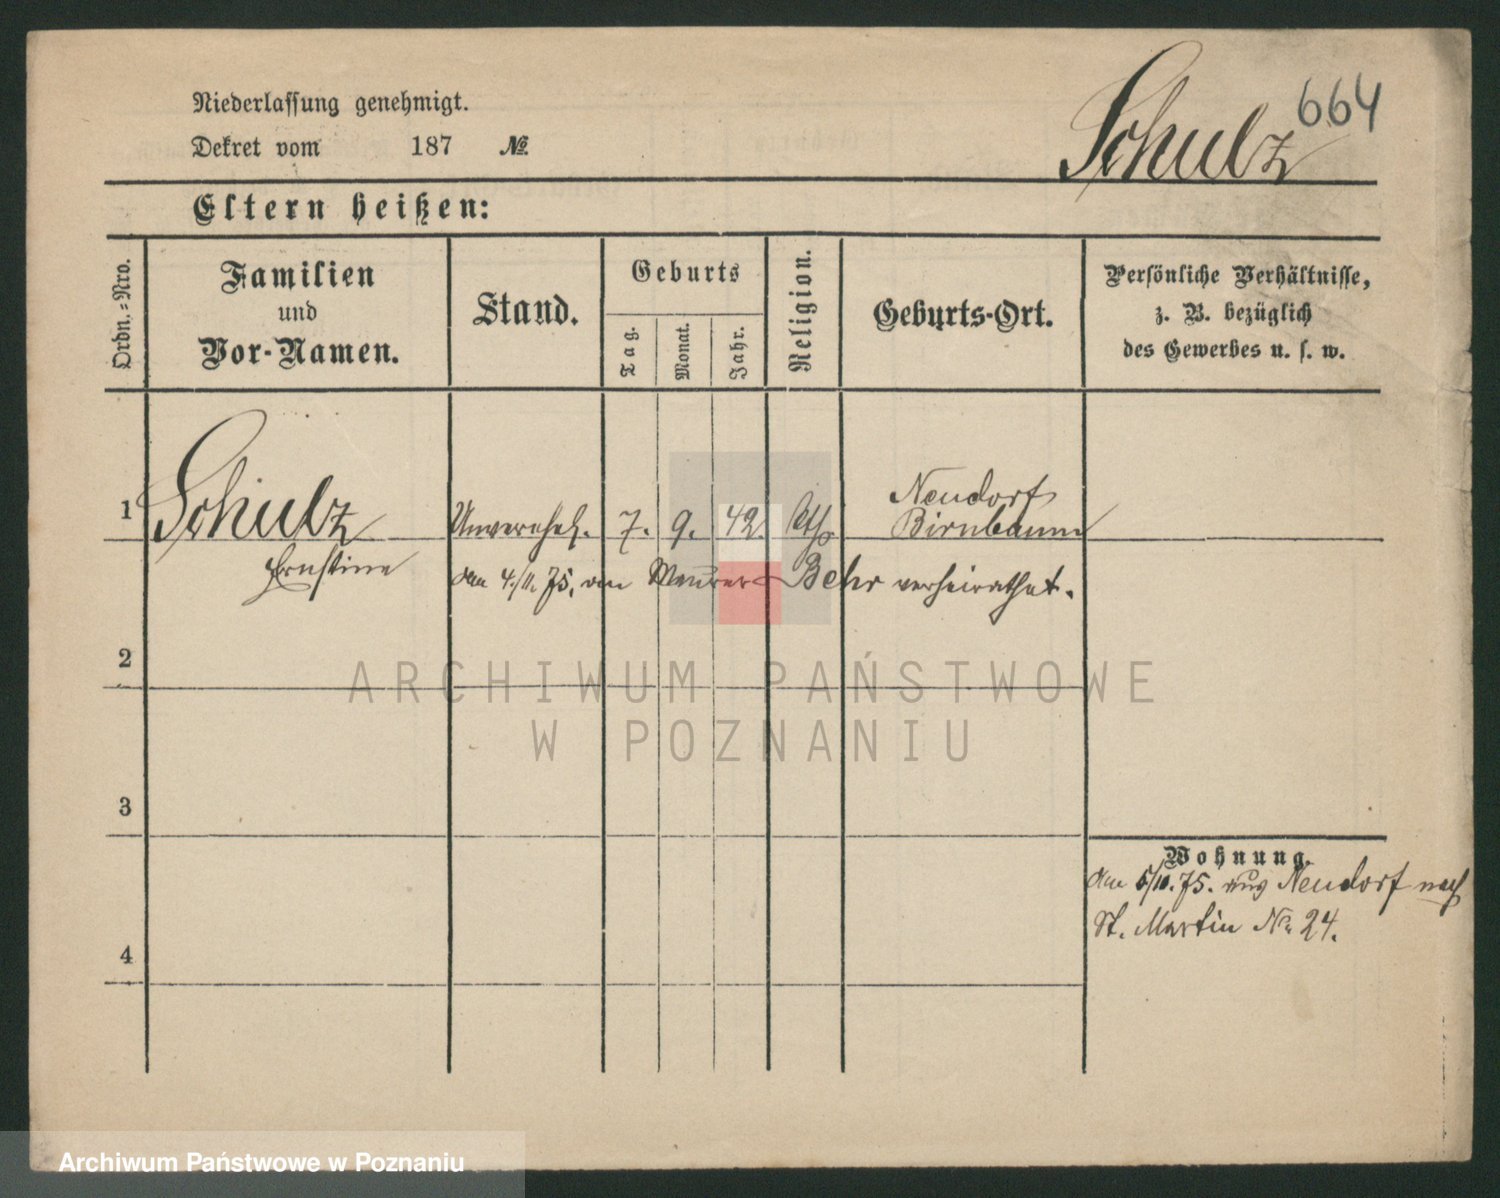 664
Schulz
Niederlassung genehmigt.
Dekret vom 187 №
Eltern heißen:
Ordn.-Nro.
Familien
und
Vor-Namen.
Stand.
Geburts
Tag.
Monat.
Jahr.
Religion.
Geburts-Ort.
Persönliche Verhältnisse,
z. B. bezüglich
des Gewerbes u. s. w.
1 Schulz Unverehel. 7. 9. 42. Kth Neudorf
Birnbaum
Ernstine den 4./11. 75. an Maurer Behr verheirathet.
2
3
4
Wohnung.
den 5/10. 75. aus Neudorf nach
St. Martin No 24.
ARCHIWUM PAŃSTWOWE
W POZNANIU
Archiwum Państwowe w Poznaniu